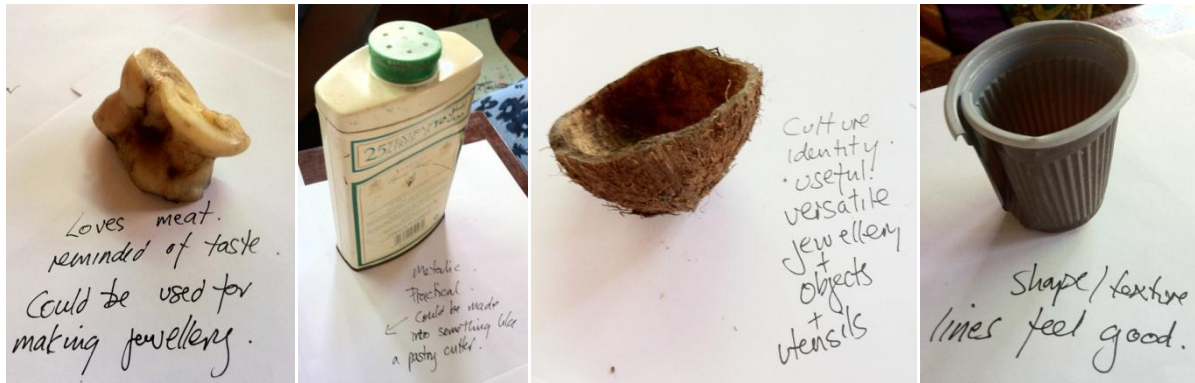 Loves meat.
reminded of taste.
Could be used for
making jewellery.
25%
Metalic.
Practical.
Could be made
into something like
a pastry cutter.
Culture
identity.
useful!
versatile
jewellery
+
objects
+
utensils
shape/texture
lines feel good.